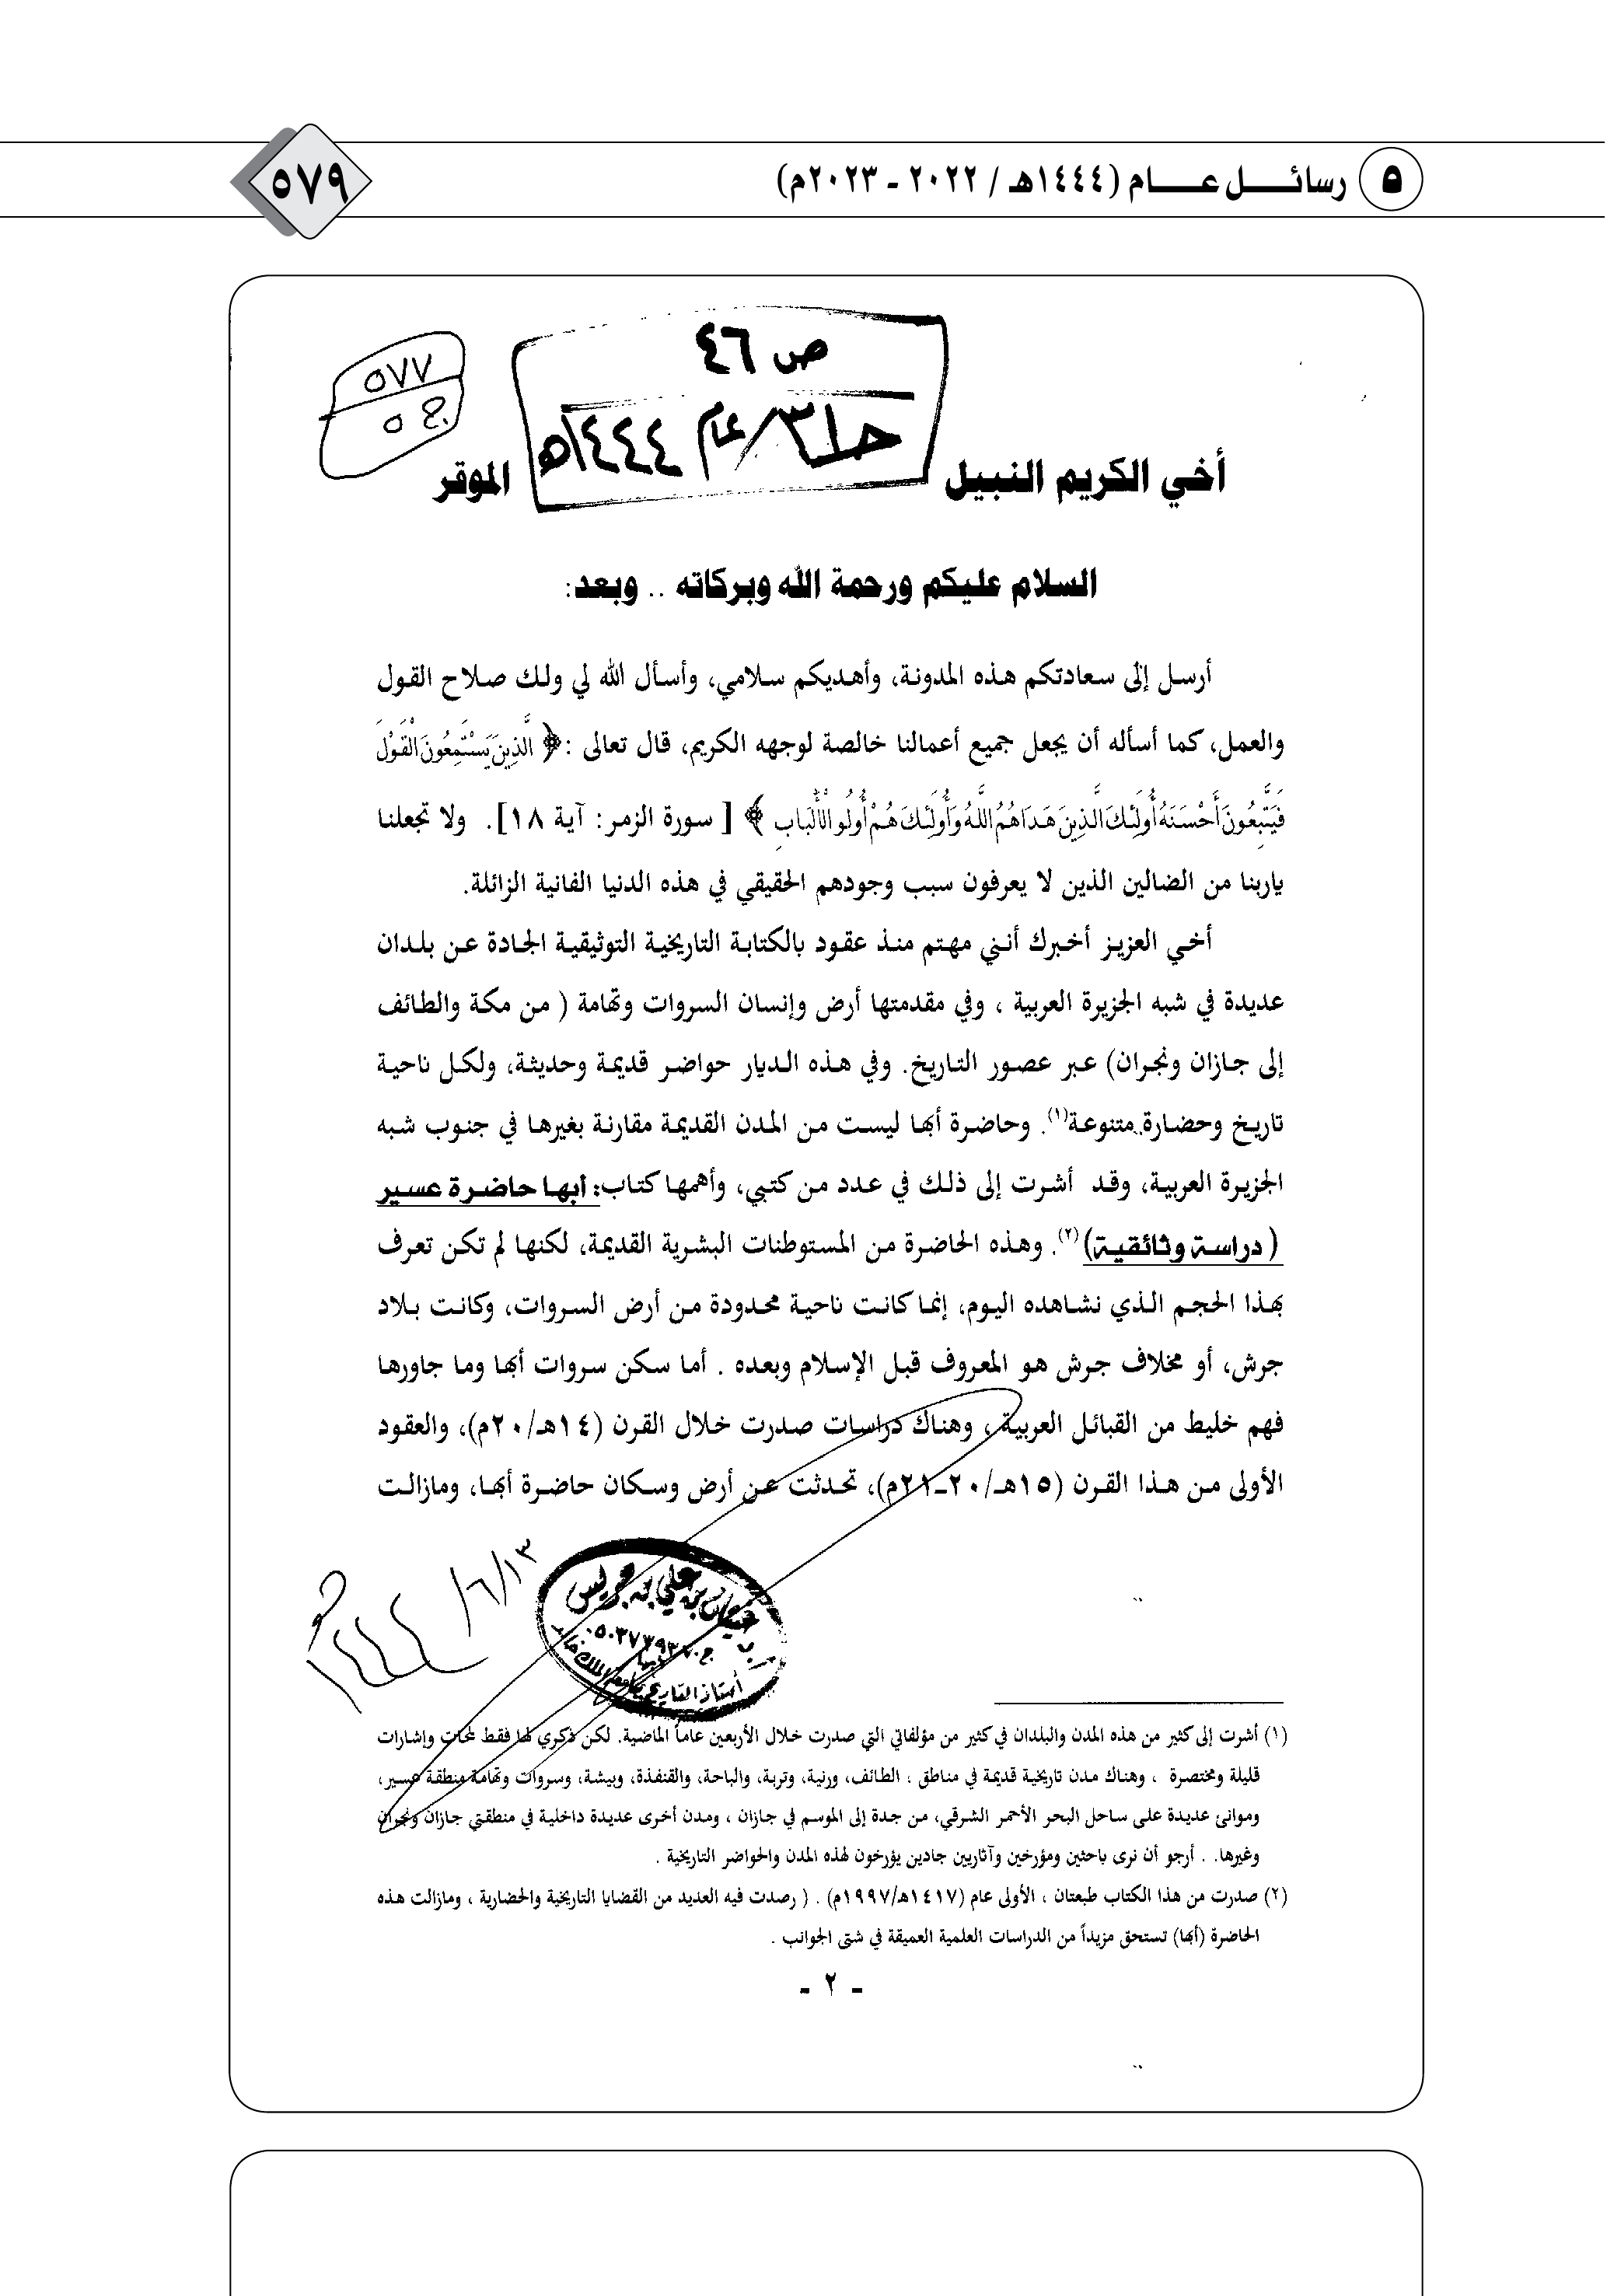 ٥ رسائـــل عـــام (١٤٤٤هـ / ٢٠٢٢ - ٢٠٢٣م)
٥٧٩
٥٧٧
ج ٥
ص ٤٦
عام ١٤٤٤هـ
أخي الكريم النبيل
الموقر
السلام عليكم ورحمة الله وبركاته .. وبعد:
أرسل إلى سعادتكم هذه المدونة، وأهديكم سلامي، وأسأل الله لي ولك صلاح القول
والعمل، كما أسأله أن يجعل جميع أعمالنا خالصة لوجهه الكريم، قال تعالى :﴿ الَّذِينَ يَسْتَمِعُونَ الْقَوْلَ
فَيَتَّبِعُونَ أَحْسَنَهُ أُولَئِكَ الَّذِينَ هَدَاهُمُ اللَّهُ وَأُولَئِكَ هُمْ أُولُو الْأَلْبَابِ ﴾ [ سورة الزمر: آية ١٨]. ولا تجعلنا
ياربنا من الضالين الذين لا يعرفون سبب وجودهم الحقيقي في هذه الدنيا الفانية الزائلة.
أخي العزيز أخبرك أنني مهتم منذ عقود بالكتابة التاريخية التوثيقية الجادة عن بلدان
عديدة في شبه الجزيرة العربية ، وفي مقدمتها أرض وإنسان السروات وتهامة ( من مكة والطائف
إلى جازان ونجران) عبر عصور التاريخ. وفي هذه الديار حواضر قديمة وحديثة، ولكل ناحية
تاريخ وحضارة متنوعة(١). وحاضرة أبها ليست من المدن القديمة مقارنة بغيرها في جنوب شبه
الجزيرة العربية، وقد أشرت إلى ذلك في عدد من كتبي، وأهمها كتاب: أبها حاضرة عسير
( دراسة وثائقية)(٢). وهذه الحاضرة من المستوطنات البشرية القديمة، لكنها لم تكن تعرف
بهذا الحجم الذي نشاهده اليوم، إنما كانت ناحية محدودة من أرض السروات، وكانت بلاد
جرش، أو مخلاف جرش هو المعروف قبل الإسلام وبعده . أما سكن سروات أبها وما جاورها
فهم خليط من القبائل العربية ، وهناك دراسات صدرت خلال القرن (١٤هـ/٢٠م)، والعقود
الأولى من هذا القرن (١٥هـ/٢٠-٢١م)، تحدثت عن أرض وسكان حاضرة أبها، ومازالت
١٣/٦/١٤٤٤
بن علي بن جريس
أبها
أستاذ التاريخ بجامعة الملك خالد
(١) أشرت إلى كثير من هذه المدن والبلدان في كثير من مؤلفاتي التي صدرت خلال الأربعين عاماً الماضية. لكن ذكري لها فقط لمحات وإشارات
قليلة ومختصرة ، وهناك مدن تاريخية قديمة في مناطق ، الطائف، ورنية، وتربة، والباحة، والقنفذة، وبيشة، وسروات وتهامة منطقة عسير،
وموانئ عديدة على ساحل البحر الأحمر الشرقي، من جدة إلى الموسم في جازان ، ومدن أخرى عديدة داخلية في منطقتي جازان ونجران
وغيرها. . أرجو أن نرى باحثين ومؤرخين وآثاريين جادين يؤرخون لهذه المدن والحواضر التاريخية .
(٢) صدرت من هذا الكتاب طبعتان ، الأولى عام (١٤١٧هـ/١٩٩٧م) . ( رصدت فيه العديد من القضايا التاريخية والحضارية ، ومازالت هذه
الحاضرة (أبها) تستحق مزيداً من الدراسات العلمية العميقة في شتى الجوانب .
- ٢ -